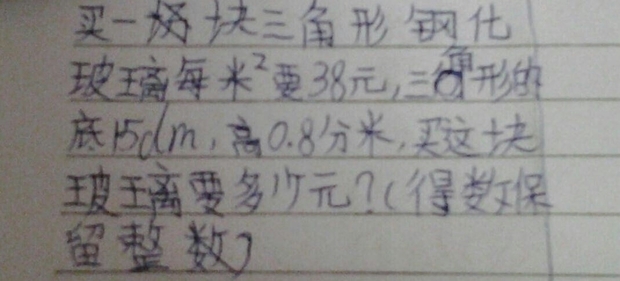 买一块三角形钢化
玻璃每米²要38元,三角形的
底15dm,高0.8分米,买这块
玻璃要多少元?(得数保
留整数)